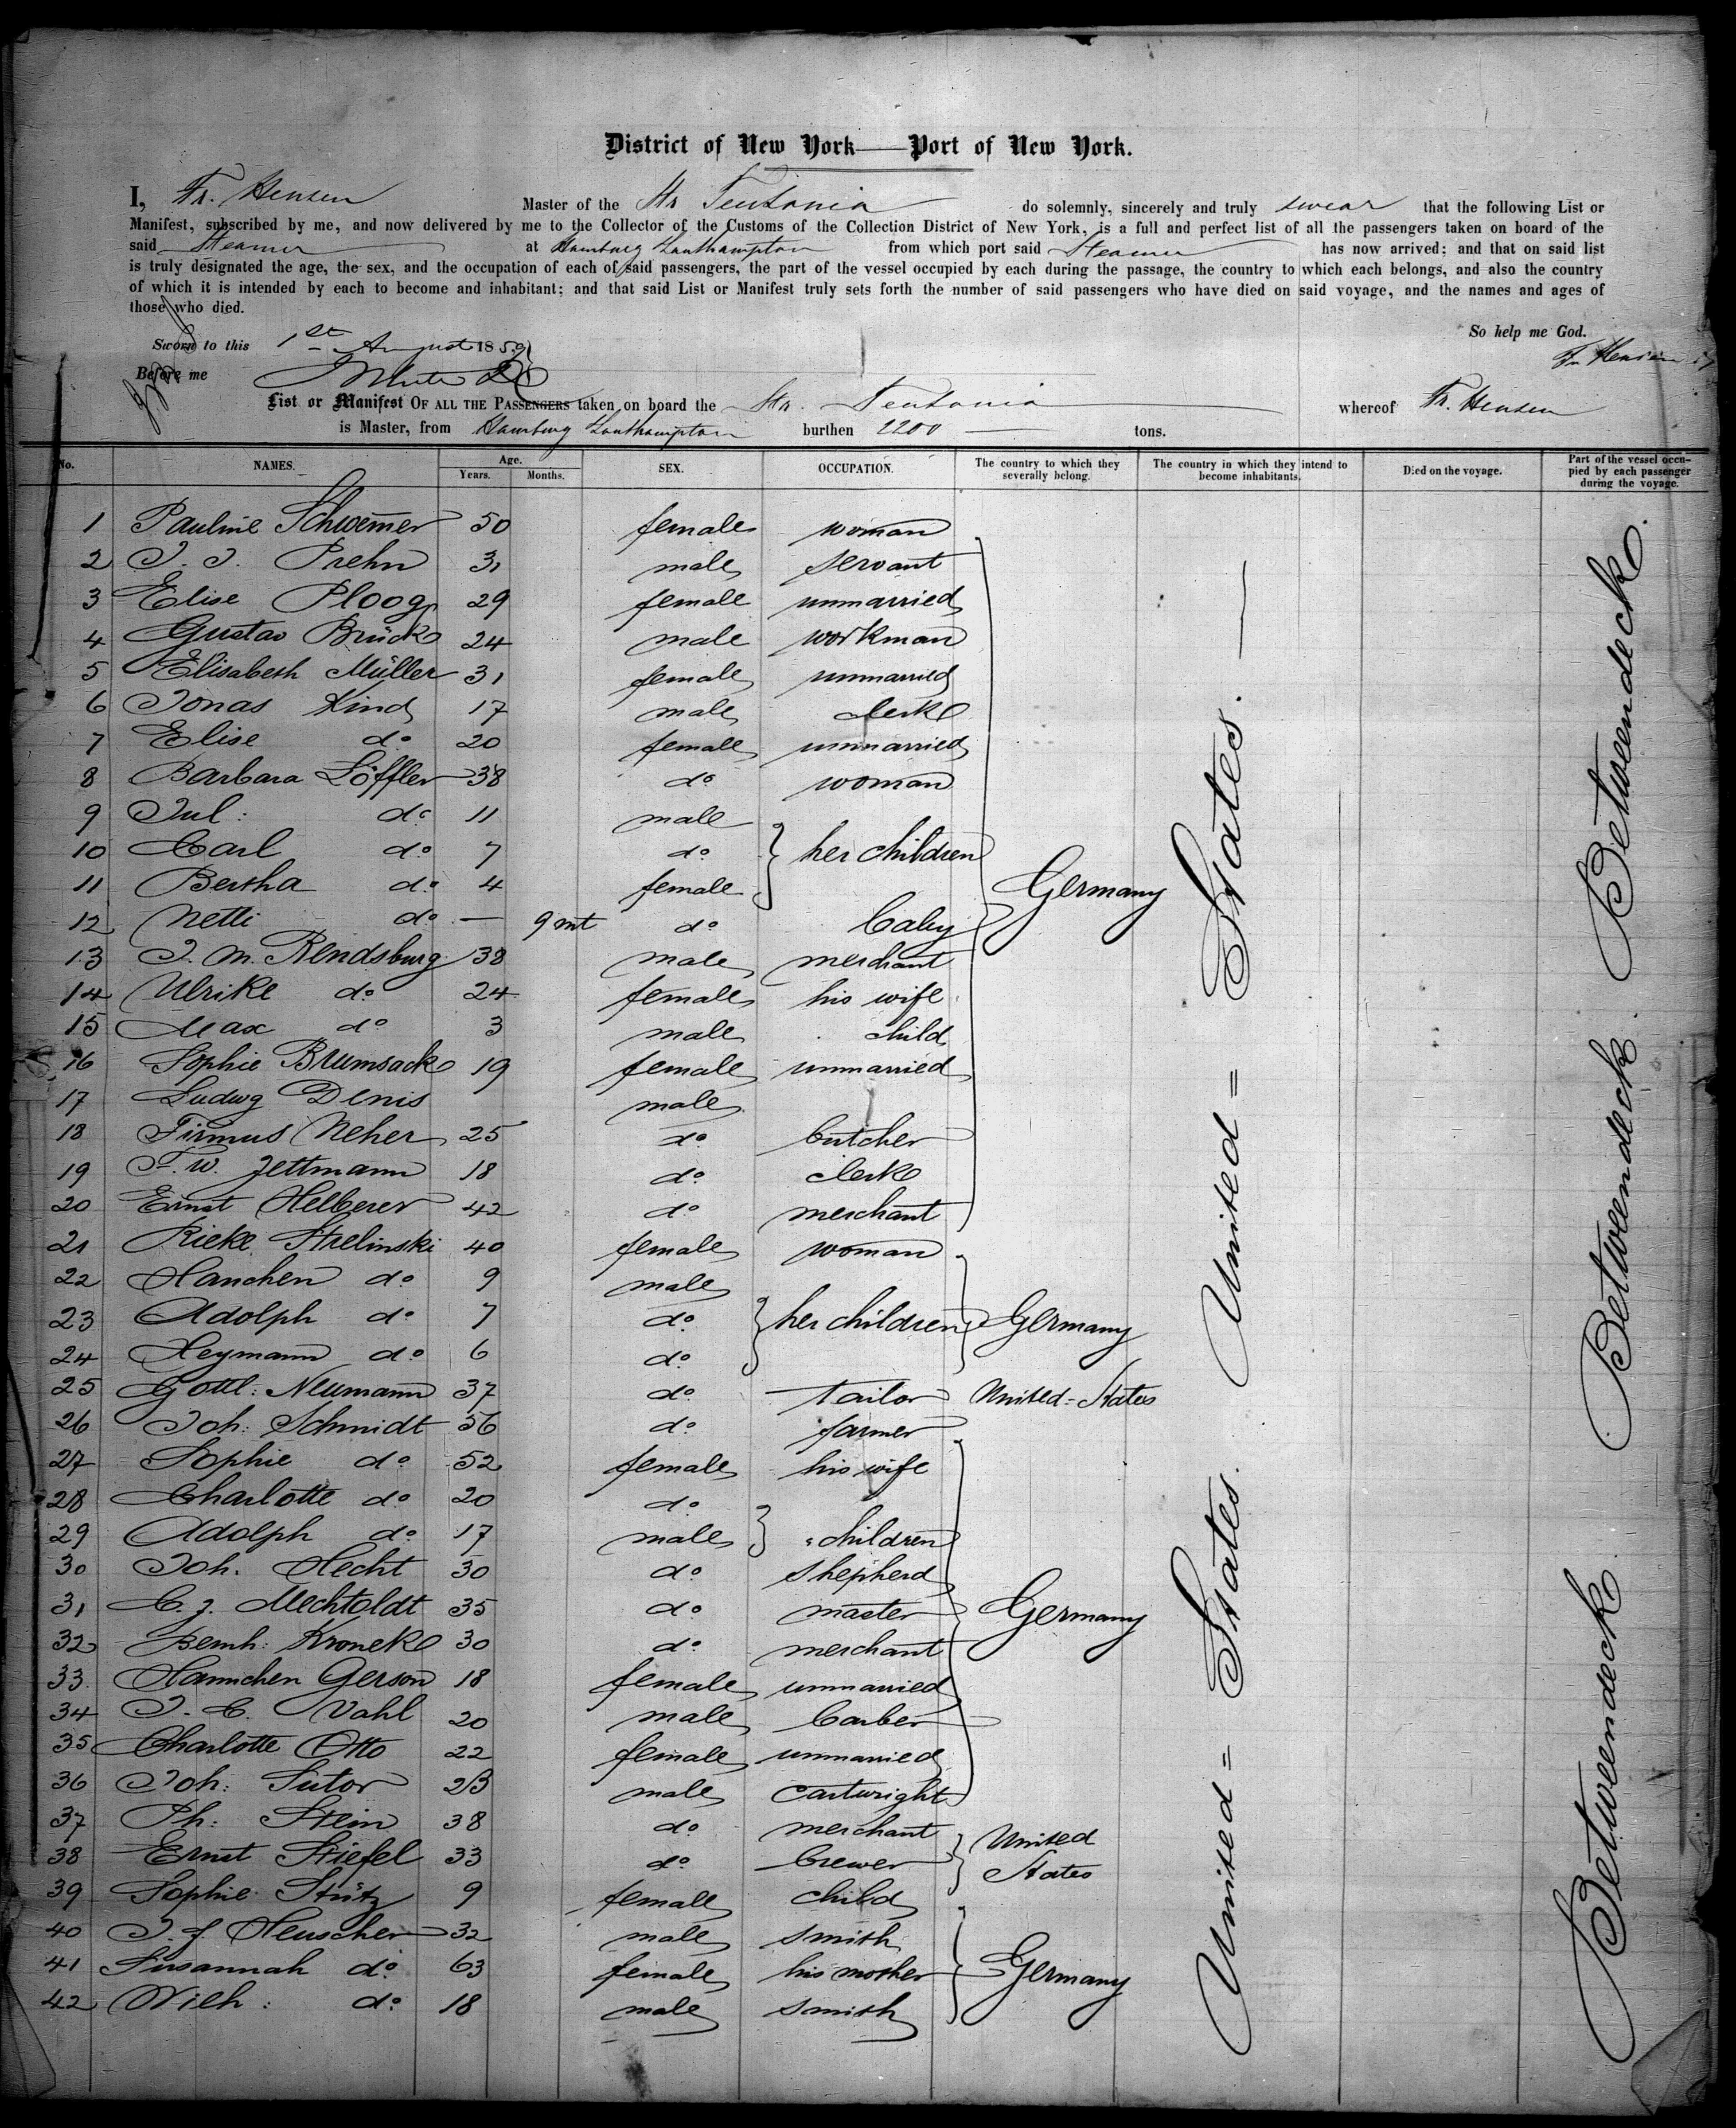 District of New York—Port of New York.
I, Fr. Hensen Master of the Str Teutonia do solemnly, sincerely and truly swear that the following List or
Manifest, subscribed by me, and now delivered by me to the Collector of the Customs of the Collection District of New York, is a full and perfect list of all the passengers taken on board of the
said Steamer at Hamburg Southampton from which port said Steamer has now arrived; and that on said list
is truly designated the age, the sex, and the occupation of each of said passengers, the part of the vessel occupied by each during the passage, the country to which each belongs, and also the country
of which it is intended by each to become and inhabitant; and that said List or Manifest truly sets forth the number of said passengers who have died on said voyage, and the names and ages of
those who died.
So help me God.
Sworn to this 1st August 1859
Fr Hensen
Before me
List or Manifest OF ALL THE PASSENGERS taken on board the Str. Teutonia whereof Fr. Hensen
is Master, from Hamburg Southampton burthen 2200 tons.
No. NAMES. Age. Years. Months. SEX. OCCUPATION. The country to which they severally belong. The country in which they intend to become inhabitants. Died on the voyage. Part of the vessel occupied by each passenger during the voyage.
1 Pauline Schwemer 50 female woman
2 J. J. Prehn 31 male servant
3 Elise Ploog 29 female unmarried
4 Gustav Brück 24 male workman
5 Elisabeth Müller 31 female unmarried
6 Jonas Kind 17 male clerk
7 Elise do 20 female unmarried
8 Barbara Löffler 38 do woman
9 Jul: do 11 male
10 Carl do 7 do her children
11 Bertha do 4 female Germany
12 Netti do — 9 mt do baby
13 J. M. Rendsburg 38 male merchant
14 Ulrike do 24 female his wife
15 Max do 3 male child
16 Sophie Brumsack 19 female unmarried
17 Ludwg Denis male
18 Firmus Neher 25 do butcher
19 F. W. Jettmann 18 do clerk
20 Ernst Helberer 42 do merchant
21 Rieke Strelinski 40 female woman
22 Hanchen do 9 male
23 Adolph do 7 do her children Germany
24 Heymann do 6 do
25 Gottl: Neumann 37 do tailor United-States
26 Joh: Schmidt 56 do farmer
27 Sophie do 52 female his wife
28 Charlotte do 20 do
29 Adolph do 17 male children
30 Joh. Hecht 30 do shepherd
31 C. J. Mechtoldt 35 do master Germany
32 Bernh: Kroneke 30 do merchant
33 Hannchen Gerson 18 female unmarried
34 J. C. Vahl 20 male barber
35 Charlotte Otto 22 female unmarried
36 Joh: Sutor 23 male cartwright
37 Ph: Stein 38 do merchant United
38 Ernst Stiefel 33 do brewer States
39 Sophie Stütz 9 female child
40 J. J Heuscher 32 male smith
41 Susannah do 63 female his mother Germany
42 Wilh: do 18 male smith
United = States. —
United = States.
Betweendeck.
Betweendeck.
Betweendeck